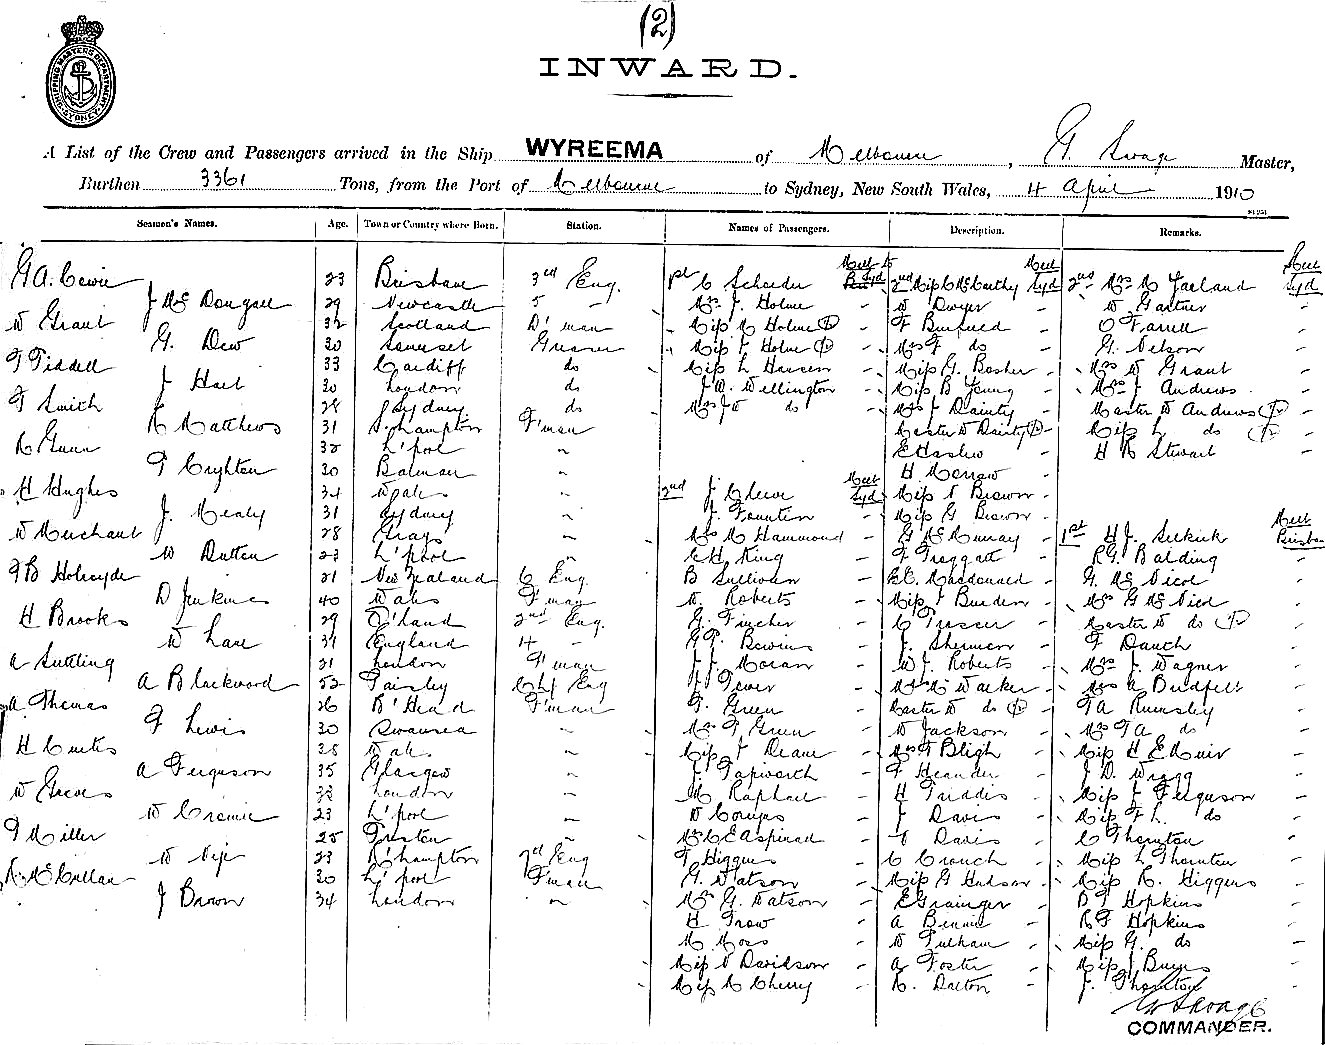 (2)
SHIPPING MASTERS DEPARTMENT SYDNEY
INWARD.
A List of the Crew and Passengers arrived in the Ship WYREEMA of Melbourne, Master,
Burthen 3361 Tons, from the Port of Melbourne to Sydney, New South Wales, 4 April 1910
Seamen's Names. Age. Town or Country where Born. Station. Names of Passengers. Description. Remarks.
23 Brisbane 3rd Eng. 1st C Schroder 2nd Miss C McCarthy Syd 2nd Mrs M Garland Syd
J McDougall 29 Newcastle 5 " Mrs J. Holme W Dwyer W Gartner
W Grant 32 Scotland D'man Miss M Holme F Burned O Farrell
G. Dew 30 Somerset Greaser Miss J Holme Mrs F do G. Nelson
F Tiddell 33 Cardiff do Miss L Hansen Miss G. Bosher Mrs W Grant
J Hart 30 London do J.W. Wellington Miss B Young Mrs J Andrews
F Smith 28 Sydney do Mrs J W do Mrs J Dainty Master W Andrews
R Matthews 31 S'hampton F'man Master W Dainty Miss L do
R Gunn 32 L'pool H R Stewart
F Cryhten 30 Balman H Morrow
H Hughes 34 Wales 2nd Syd Miss N Brown
J. Mealy 31 Sydney J. Miss G Brown
W Merchant 28 Grays Mrs M Hammond G McMurray 1st H J. Selkirk Brisbane
W Dutton 23 L'pool C H King F Froggatt R G. Balding
F B Holroyde 21 New Zealand 6 Eng. B Sullivan E C. Macdonald G. McNicol
D Jenkins 40 Wales F'man W. Roberts Miss J Burden Mrs G McNicol
H Brooks 29 Q'land 2nd Eng. G. Fincher C Prosser Master W do
W Lane 31 England 4 " J. Sherman F Dauth
A Suttling 21 London F'man J J. Moran W J. Roberts Mrs J. Wagner
A Blackwood 52 Paisley Chf Eng Mrs M Walker Mrs A
A Thomas 26 B'Head F'man F. Green Master W do F A Rumsley
F Lewis 30 Swansea Mrs F Green W Jackson Mrs F A do
H Curtis 38 Wales Miss J Deane Mrs F Bligh Miss H E Muir
A Ferguson 35 Glasgow J. Papworth F J D. Wragg
W Groves 32 London M Raphael H Miss J Ferguson
23 L'pool J Davis Miss F L. do
F Miller 25 Preston Davis C Thornton
23 R'hampton 7th Eng F Higgins C Crouch Miss L Thornton
30 L'pool F'man G. Watson Miss G Hudson Miss R. Higgens
J Brown 34 London Mrs G. Watson E Grainger B F Hopkins
H Trow A Bennie R F Hopkins
M Moss W Pulham Miss G. do
Miss N Davidson A Foster Miss J
Miss M Cherry R. Dalton J. Thornton
COMMANDER.